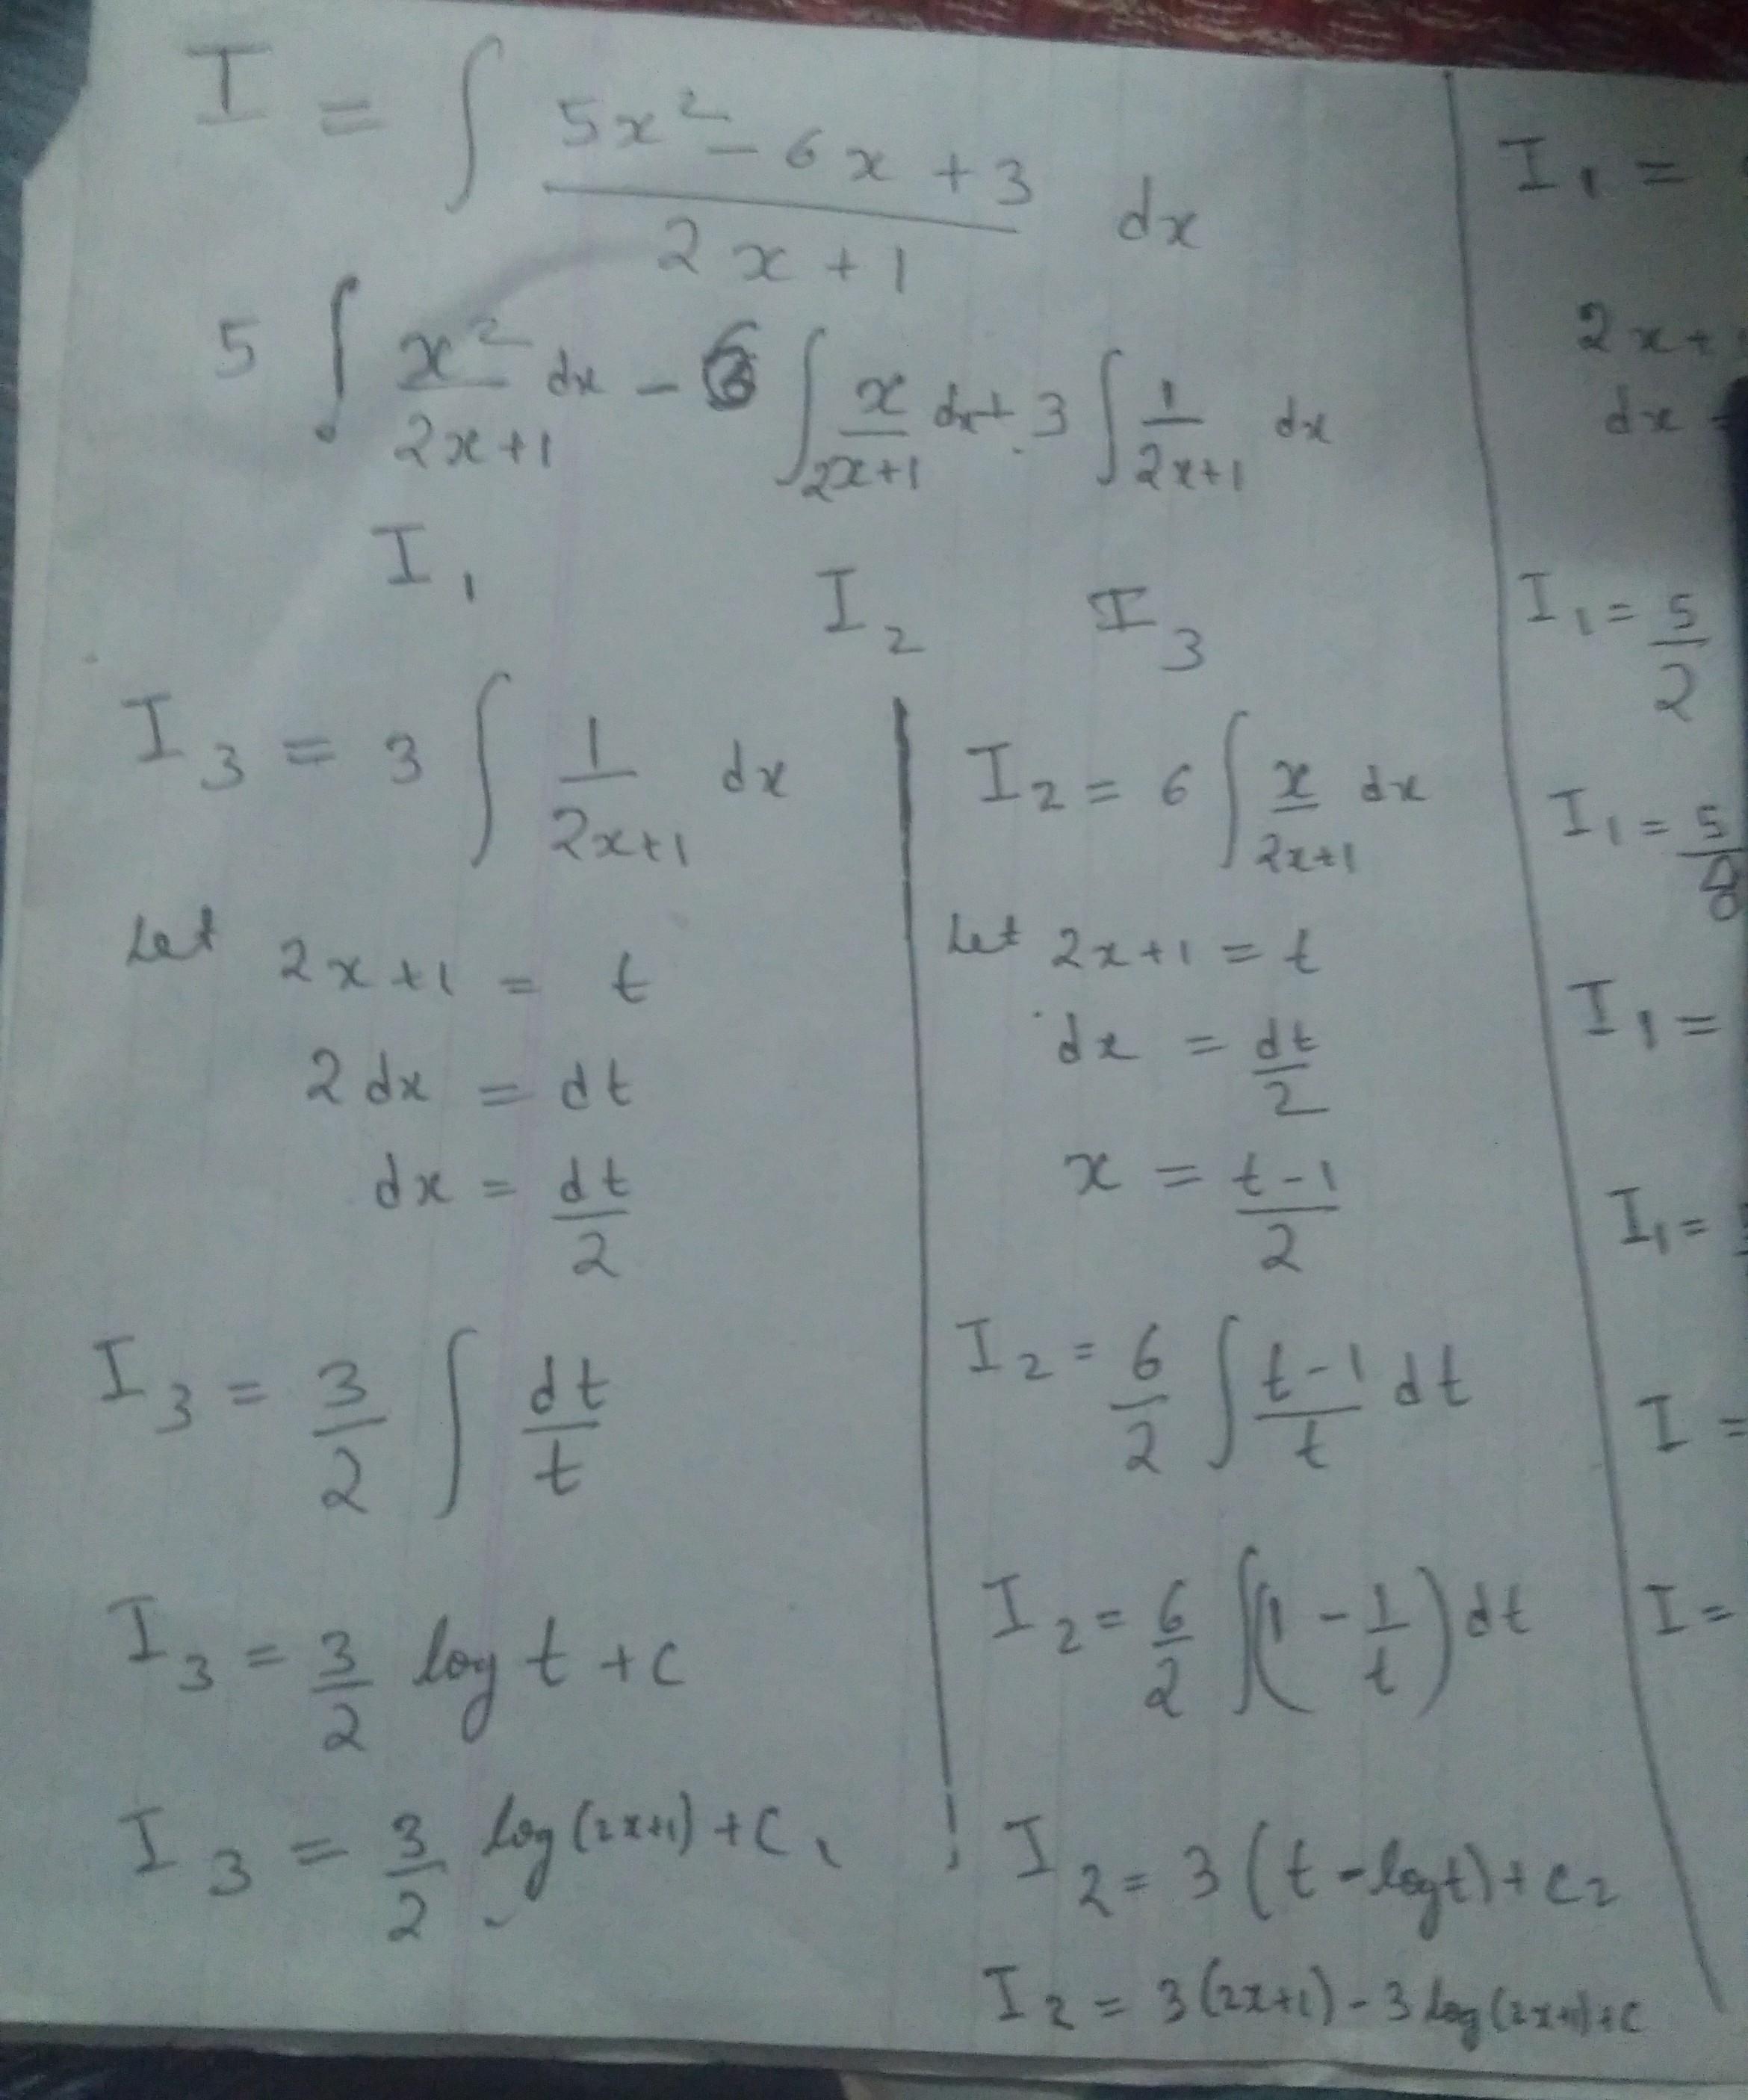 I = ∫ (5x² - 6x + 3)/(2x + 1) dx
5 ∫ x²/(2x+1) dx - 6 ∫ x/(2x+1) dx + 3 ∫ 1/(2x+1) dx
I₁ I₂ I₃
I₃ = 3 ∫ 1/(2x+1) dx
Let 2x+1 = t
2dx = dt
dx = dt/2
I₃ = 3/2 ∫ dt/t
I₃ = 3/2 log t + c
I₃ = 3/2 log(2x+1) + C₁
I₂ = 6 ∫ x/(2x+1) dx
Let 2x+1 = t
dx = dt/2
x = (t-1)/2
I₂ = 6/2 ∫ (t-1)/t dt
I₂ = 6/2 ∫(1 - 1/t) dt
I₂ = 3(t - log t) + c₂
I₂ = 3(2x+1) - 3 log(2x+1) + c
I₁ =
2x+
dx =
I₁ = 5/2
I₁ = 5/8
I₁ =
I₁ =
I =
I =